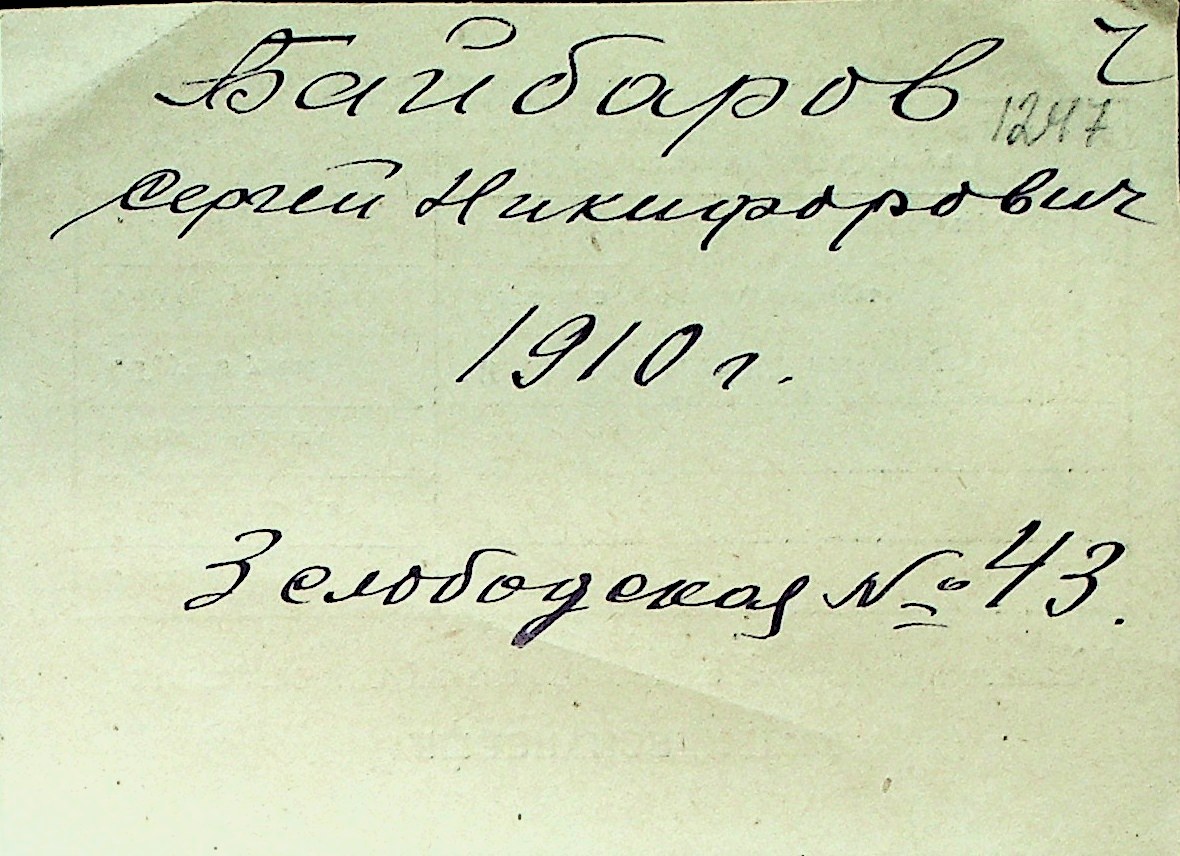 Байбаров ч
1247
Сергей Никифорович
1910 г.
3 слободская № 43.